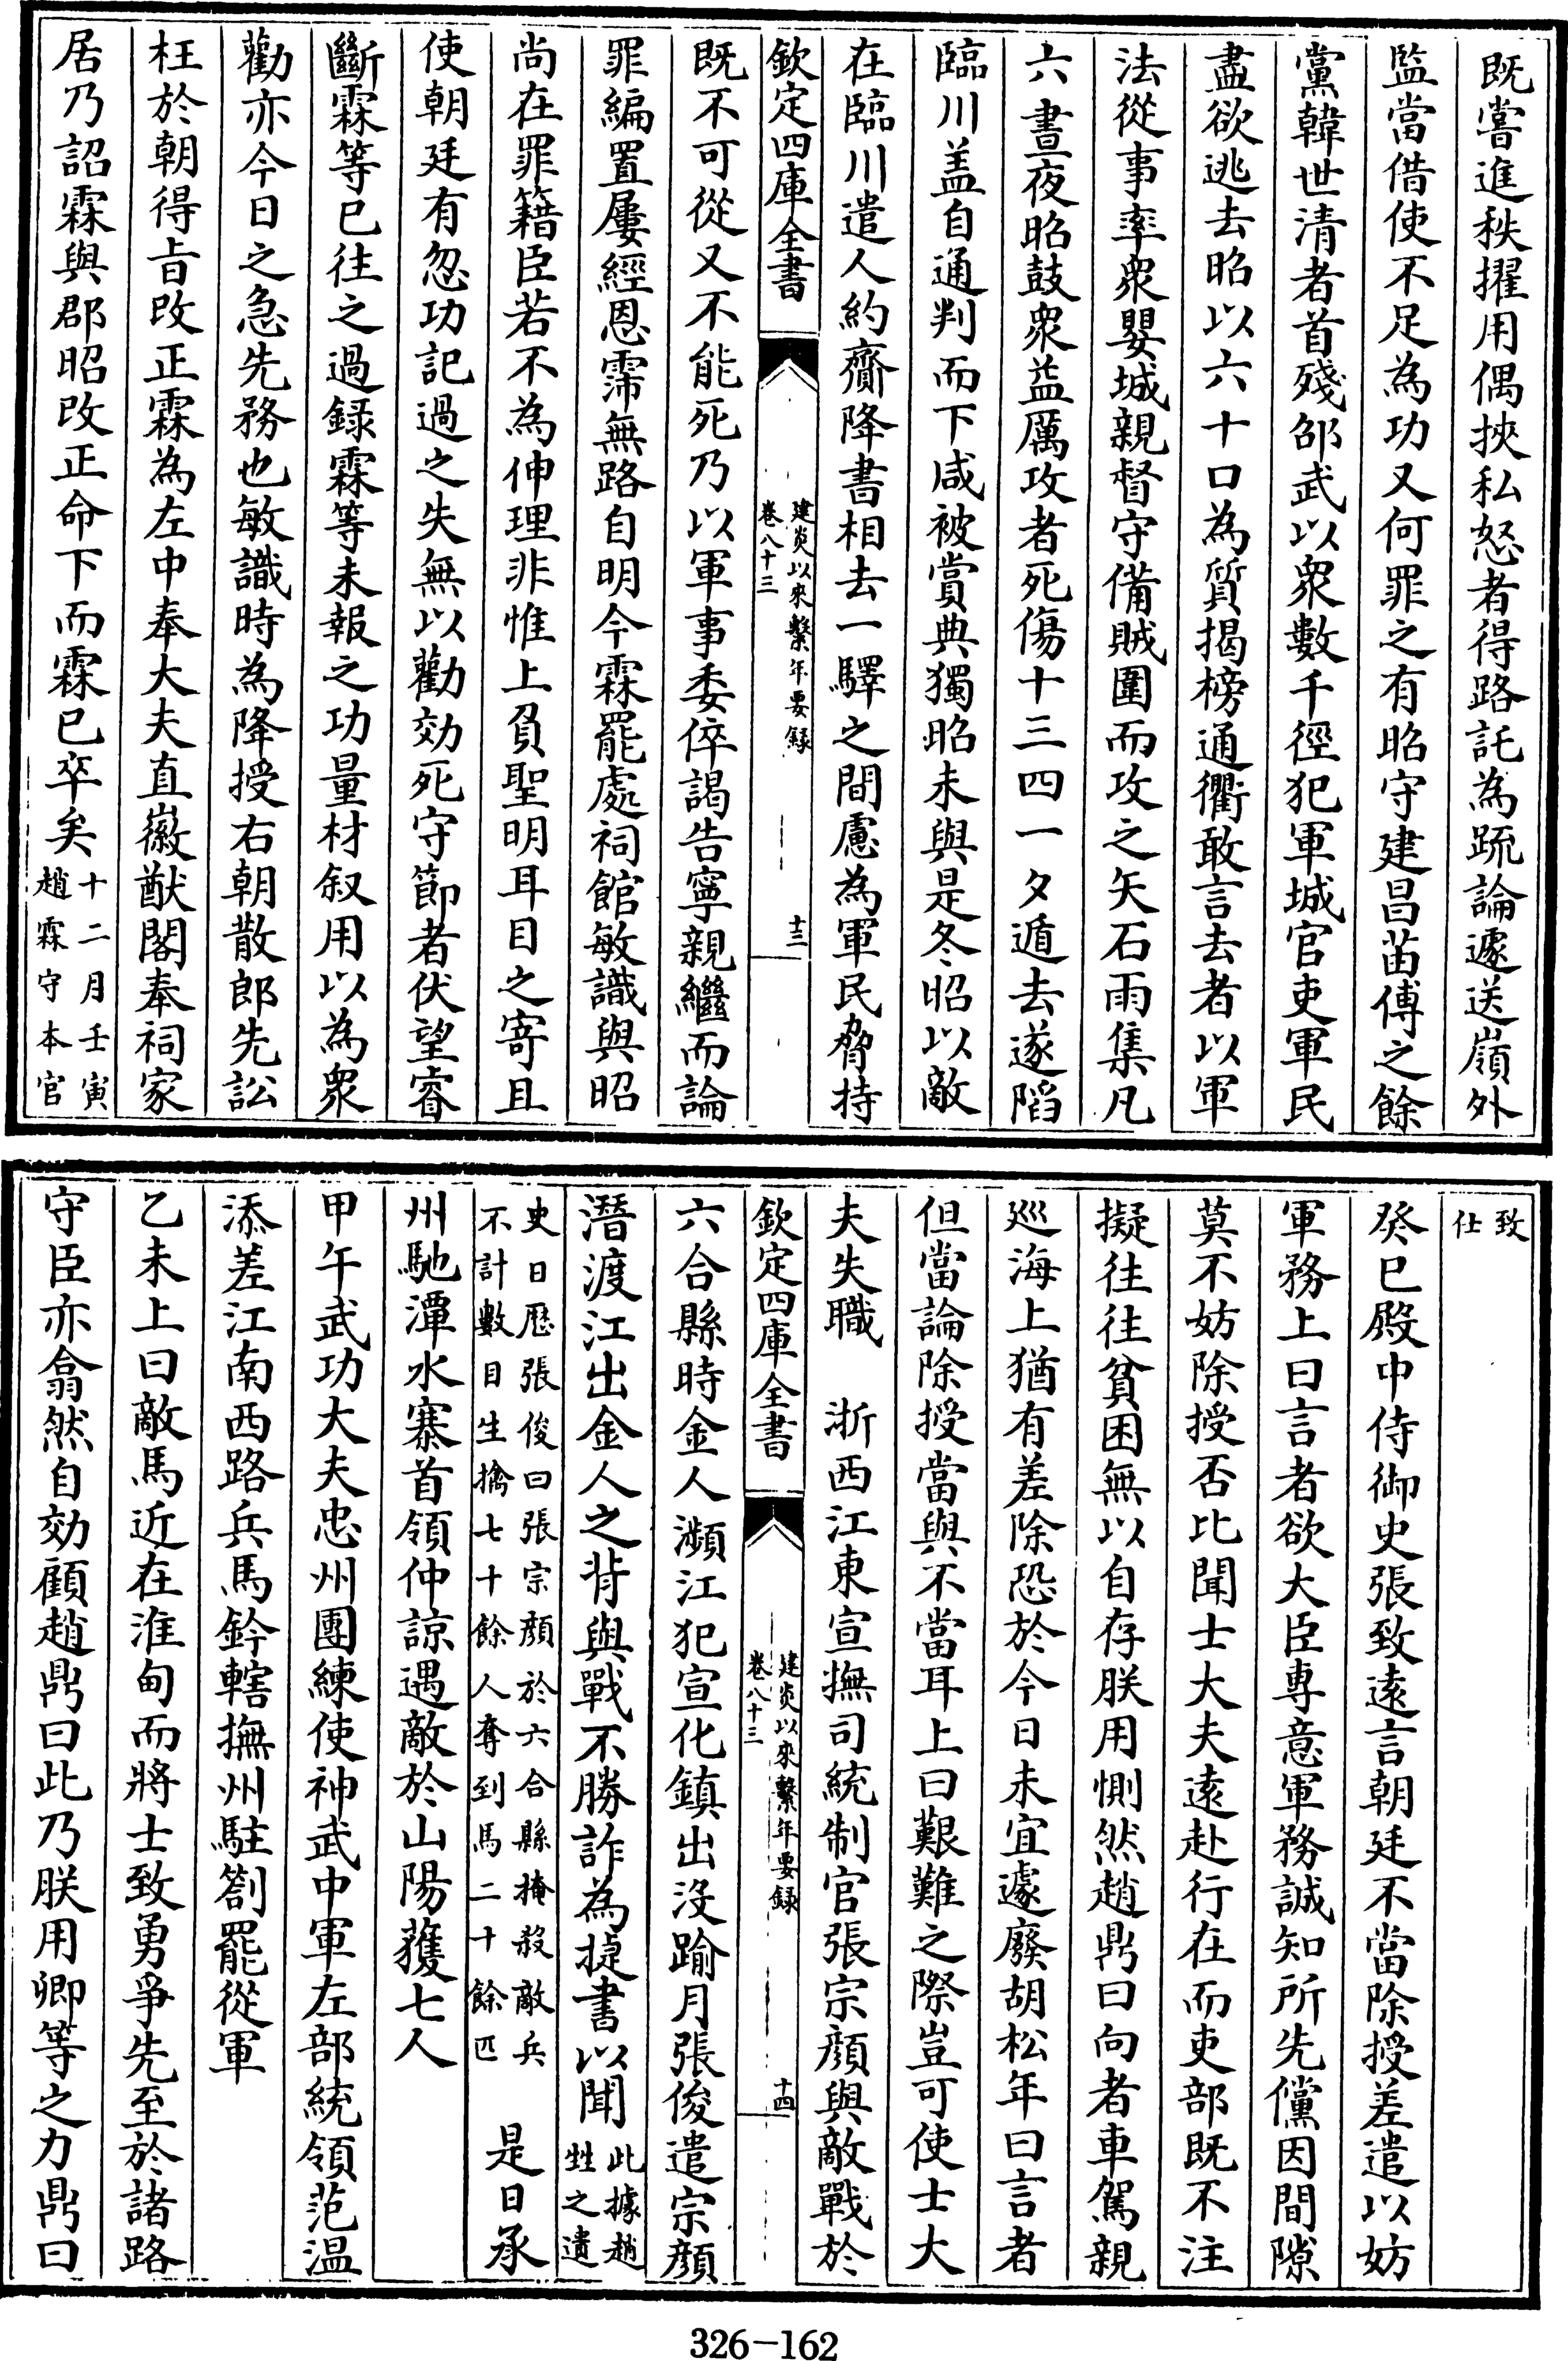 既嘗進秩擢用偶挾私怒者得路託為疏論遽送嶺外
監當借使不足為功又何罪之有昭守建昌苗傅之餘
黨韓世清者首殘邵武以衆數千徑犯軍城官吏軍民
盡欲逃去昭以六十口為質揭榜通衢敢言去者以軍
法從事率衆嬰城親督守備賊圍而攻之矢石雨集凡
六晝夜昭鼓衆益厲攻者死傷十三四一夕遁去遂陷
臨川盖自通判而下咸被賞典獨昭未與是冬昭以敵
在臨川遣人約齎降書相去一驛之間慮為軍民脅持
欽定四庫全書
建炎以來繫年要録
卷八十三
十三
既不可從又不能死乃以軍事委倅謁告寧親繼而論
罪編置屢經恩霈無路自明今霖罷處祠館敏識與昭
尚在罪籍臣若不為伸理非惟上負聖明耳目之寄且
使朝廷有忽功記過之失無以勸効死守節者伏望睿
斷霖等已往之過録霖等未報之功量材叙用以為衆
勸亦今日之急先務也敏識時為降授右朝散郎先訟
枉於朝得㫖改正霖為左中奉大夫直徽猷閣奉祠家
居乃詔霖與郡昭改正命下而霖已卒矣
十二月壬寅
趙霖守本官
致
仕
癸巳殿中侍御史張致遠言朝廷不當除授差遣以妨
軍務上曰言者欲大臣專意軍務誠知所先儻因間隙
莫不妨除授否比聞士大夫遠赴行在而吏部既不注
擬往往貧困無以自存朕用惻然趙鼎曰向者車駕親
巡海上猶有差除恐於今日未宜遽廢胡松年曰言者
但當論除授當與不當耳上曰艱難之際豈可使士大
夫失職　浙西江東宣撫司統制官張宗顔與敵戰於
欽定四庫全書
建炎以來繫年要録
卷八十三
十四
六合縣時金人瀕江犯宣化鎮出没踰月張俊遣宗顔
潛渡江出金人之背與戰不勝詐為捷書以聞
此據趙
甡之遺
史日厯張俊曰張宗顔於六合縣掩殺敵兵
不計數目生擒七十餘人奪到馬二十餘匹
是日承
州馳潭水寨首領仲諒遇敵於山陽獲七人
甲午武功大夫忠州團練使神武中軍左部統領范温
添差江南西路兵馬鈐轄撫州駐劄罷從軍
乙未上曰敵馬近在淮甸而將士致勇爭先至於諸路
守臣亦翕然自効顧趙鼎曰此乃朕用卿等之力鼎曰
326-162